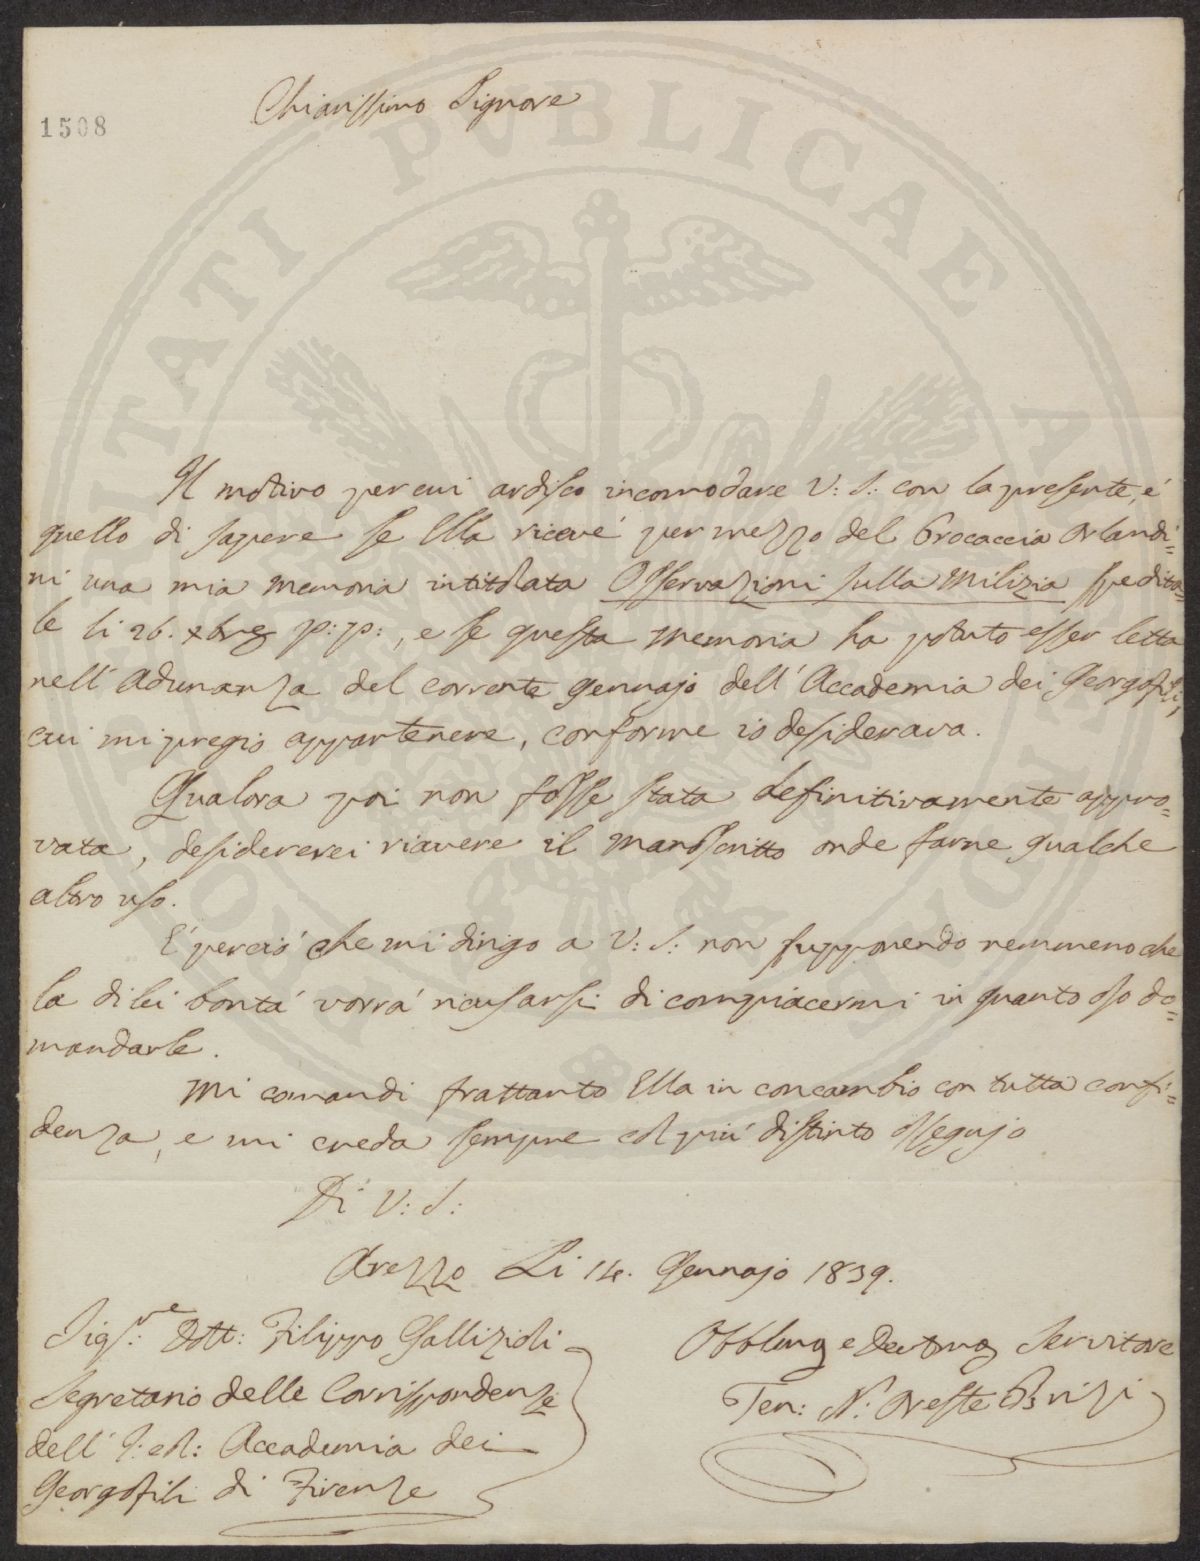 Chiarissimo Signore
1508
Il motivo per cui ardisco incomodare V: S: con la presente, é
quello di sapere se Ella riceve' per mezzo del Procaccia Orlandi=
ni una mia memoria intitolata Osservazioni sulla Milizia spedita=
le li 26. xbre p: p:, e se questa memoria ha potuto esser letta
nell' Adunanza del corrente Gennajo dell' Accademia dei Georgofili,
cui mi pregio appartenere, conforme io desiderava.
Qualora poi non fosse stata definitivamente appro=
vata, desidererei riavere il manoscritto onde farne qualche
altro uso.
E' perciò che mi dirigo a V: S: non supponendo nemmeno che
la di lei bontá vorrá ricusarsi di compiacermi in quanto oso do=
mandarle.
Mi comandi frattanto Ella in concambio con tutta confi=
denza, e mi creda sempre col piú distinto ossequio
Di V: S:
Arezzo Li 14. Gennajo 1839.
Sig.re Dott: Filippo Gallizioli
Segretario delle Corrispondenze
dell' I: e R: Accademia dei
Georgofili di Firenze
Obblmo e Devotmo Servitore
Ten: N: Oreste Brizi
PUBLICAE